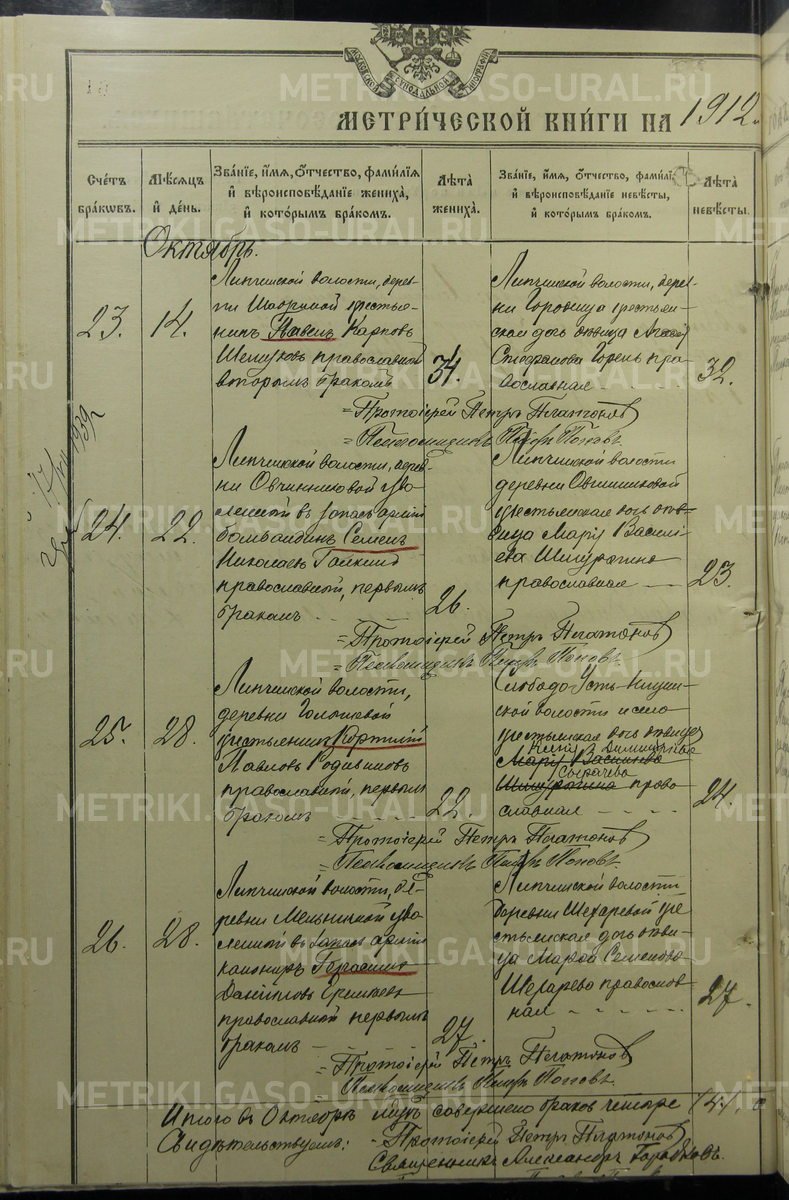 МОСКОВСКОЙ СѴНОДАЛЬНОЙ ТИПОГРАФІИ
МЕТРИ́ЧЕСКОЙ КНИ́ГИ НА 1912
Сче́тъ бра́кωвъ.
Мѣ́сѧцъ и҆ де́нь.
Зва́нїе, и҆́мѧ, ѻ҆́тчество, фами́лїѧ
и҆ вѣроисповѣ́данїе жениха̀,
и҆ кото́рымъ бра́комъ.
Лѣ́та жениха̀.
Зва́нїе, и҆́мѧ, ѻ҆́тчество, фами́лїѧ
и҆ вѣроисповѣ́данїе невѣ́сты,
и҆ кото́рымъ бра́комъ.
Лѣ́та невѣ́сты.
Октябрь.
23.
14.
Липчинской волости, дерев-
ни крестья-
нинъ Павелъ Карповъ
православный
вторымъ бракомъ
34.
Липчинской волости, дерев-
ни Городища крестьян-
ская дочь девица
Стефанова православная
32.
Протоіерей Петръ Платоновъ
Псаломщикъ Петръ Поповъ.
24.
22.
Липчинской волости, дерев-
ни Овчинниковой уво-
ленный въ запасъ арміи
бомбардиръ Семенъ
Николаевъ
православный, первымъ
бракомъ
26.
Липчинской волости
деревни Овчинниковой
крестьянская дочь дѣ-
вица Марія Василь-
ева
православная
23.
Протоіерей Петръ Платоновъ
Псаломщикъ Петръ Поповъ.
25.
28.
Липчинской волости,
деревни
крестьянинъ
Павловъ Родионовъ
православный, первымъ
бракомъ
22.
Слободо-Усть-Ницин-
ской волости и села
крестьянская дочь девица
Димитріева
Марія Васильева
право-
славная
24.
Протоіерей Петръ Платоновъ
Псаломщикъ Петръ Поповъ.
26.
28.
Липчинской волости, де-
ревни Мельничной уво-
ленный въ запасъ арміи
канониръ Герасимъ
Даниловъ
православный первымъ
бракомъ
27.
Липчинской волости
деревни Шехаревой кре-
стьянская дочь деви-
ца Марѳа Семенова
Шехарева православ-
ная
27.
Протоіерей Петръ Платоновъ
Псаломщикъ Петръ Поповъ.
Итого въ Октябрѣ мѣсяцѣ совершено браковъ четыре (4).
Свидѣтельствуемъ: Протоіерей Петръ Платоновъ
Священникъ Александръ
METRIKI.GASO-URAL.RU